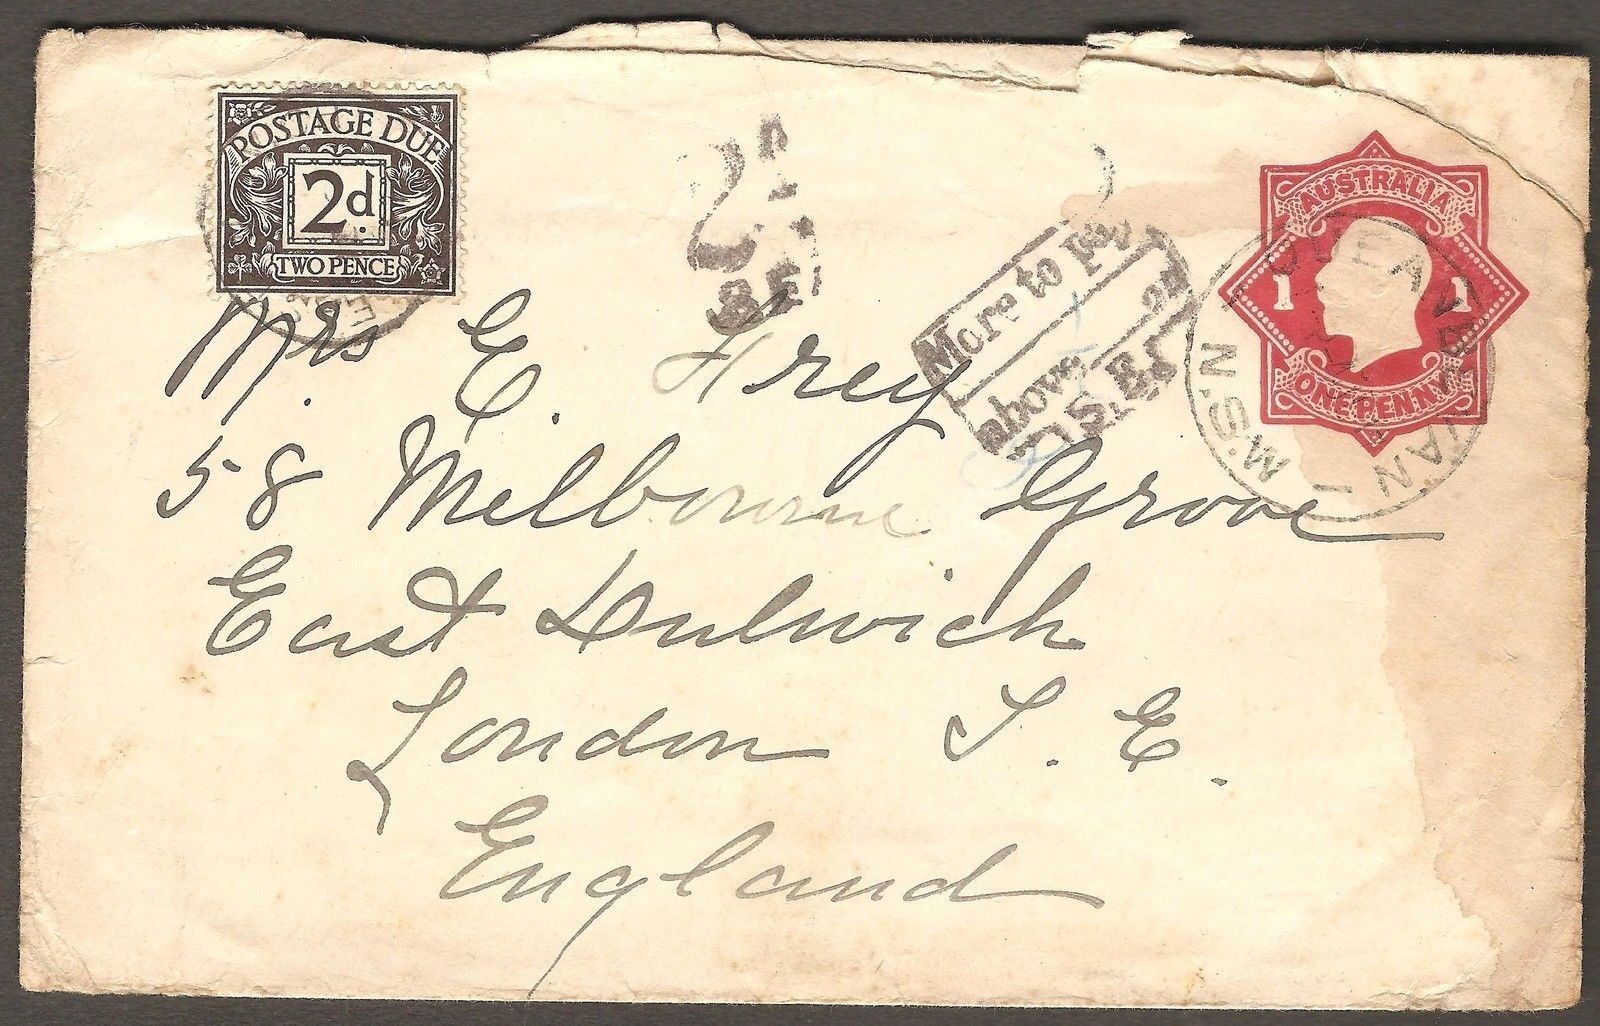 POSTAGE DUE
2d.
TWO PENCE
AUSTRALIA
1 1
ONE PENNY
QUEANBEYAN
N.S.W
More to pay
above
S.E.
Mrs E. Frey
58 Melbourne Grove
East Dulwich
London S. E.
England